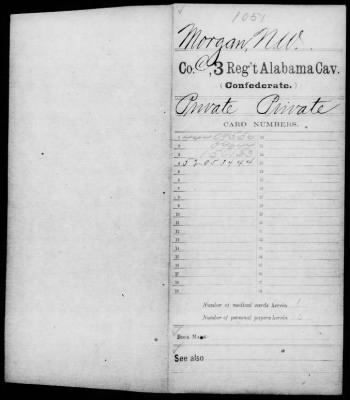 1051
Morgan, N.W.
Co. C, 3 Reg't Alabama Cav.
(Confederate.)
Private Private
CARD NUMBERS.
1
2
3
4 52053444
5
6
7
8
9
10
11
12
13
14
15
16
17
18
Number of medical cards herein 1
Number of personal papers herein
BOOK MARK:
See also